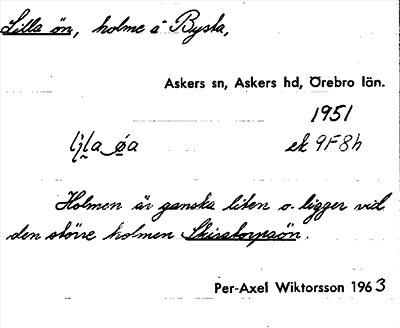 Lilla ön, holme å Bysta,
Askers sn, Askers hd, Örebro län.
1951
ek 9F8h
Holmen är ganska liten o. ligger vid
den större holmen Skirstorpsön.
Per-Axel Wiktorsson 1963